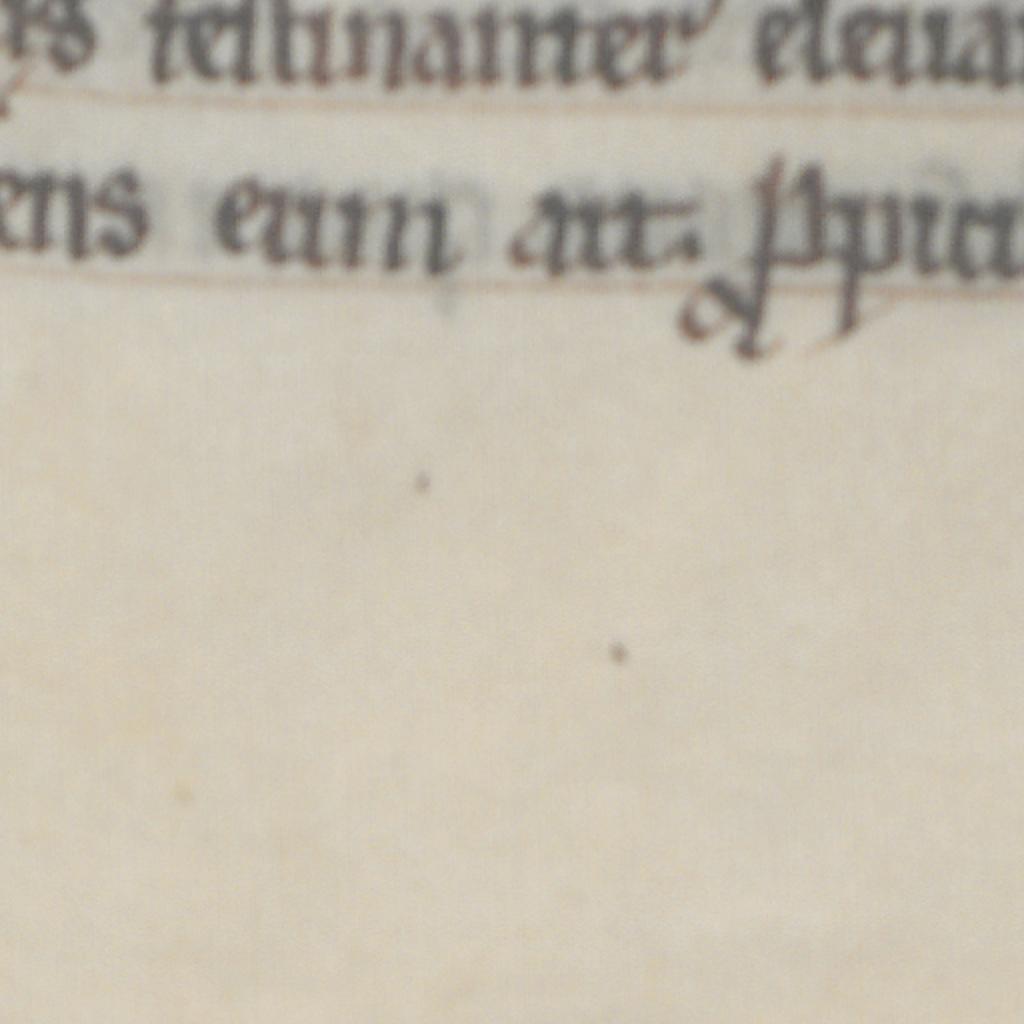 is festinanter eleua
ens eum ait: ꝓpici